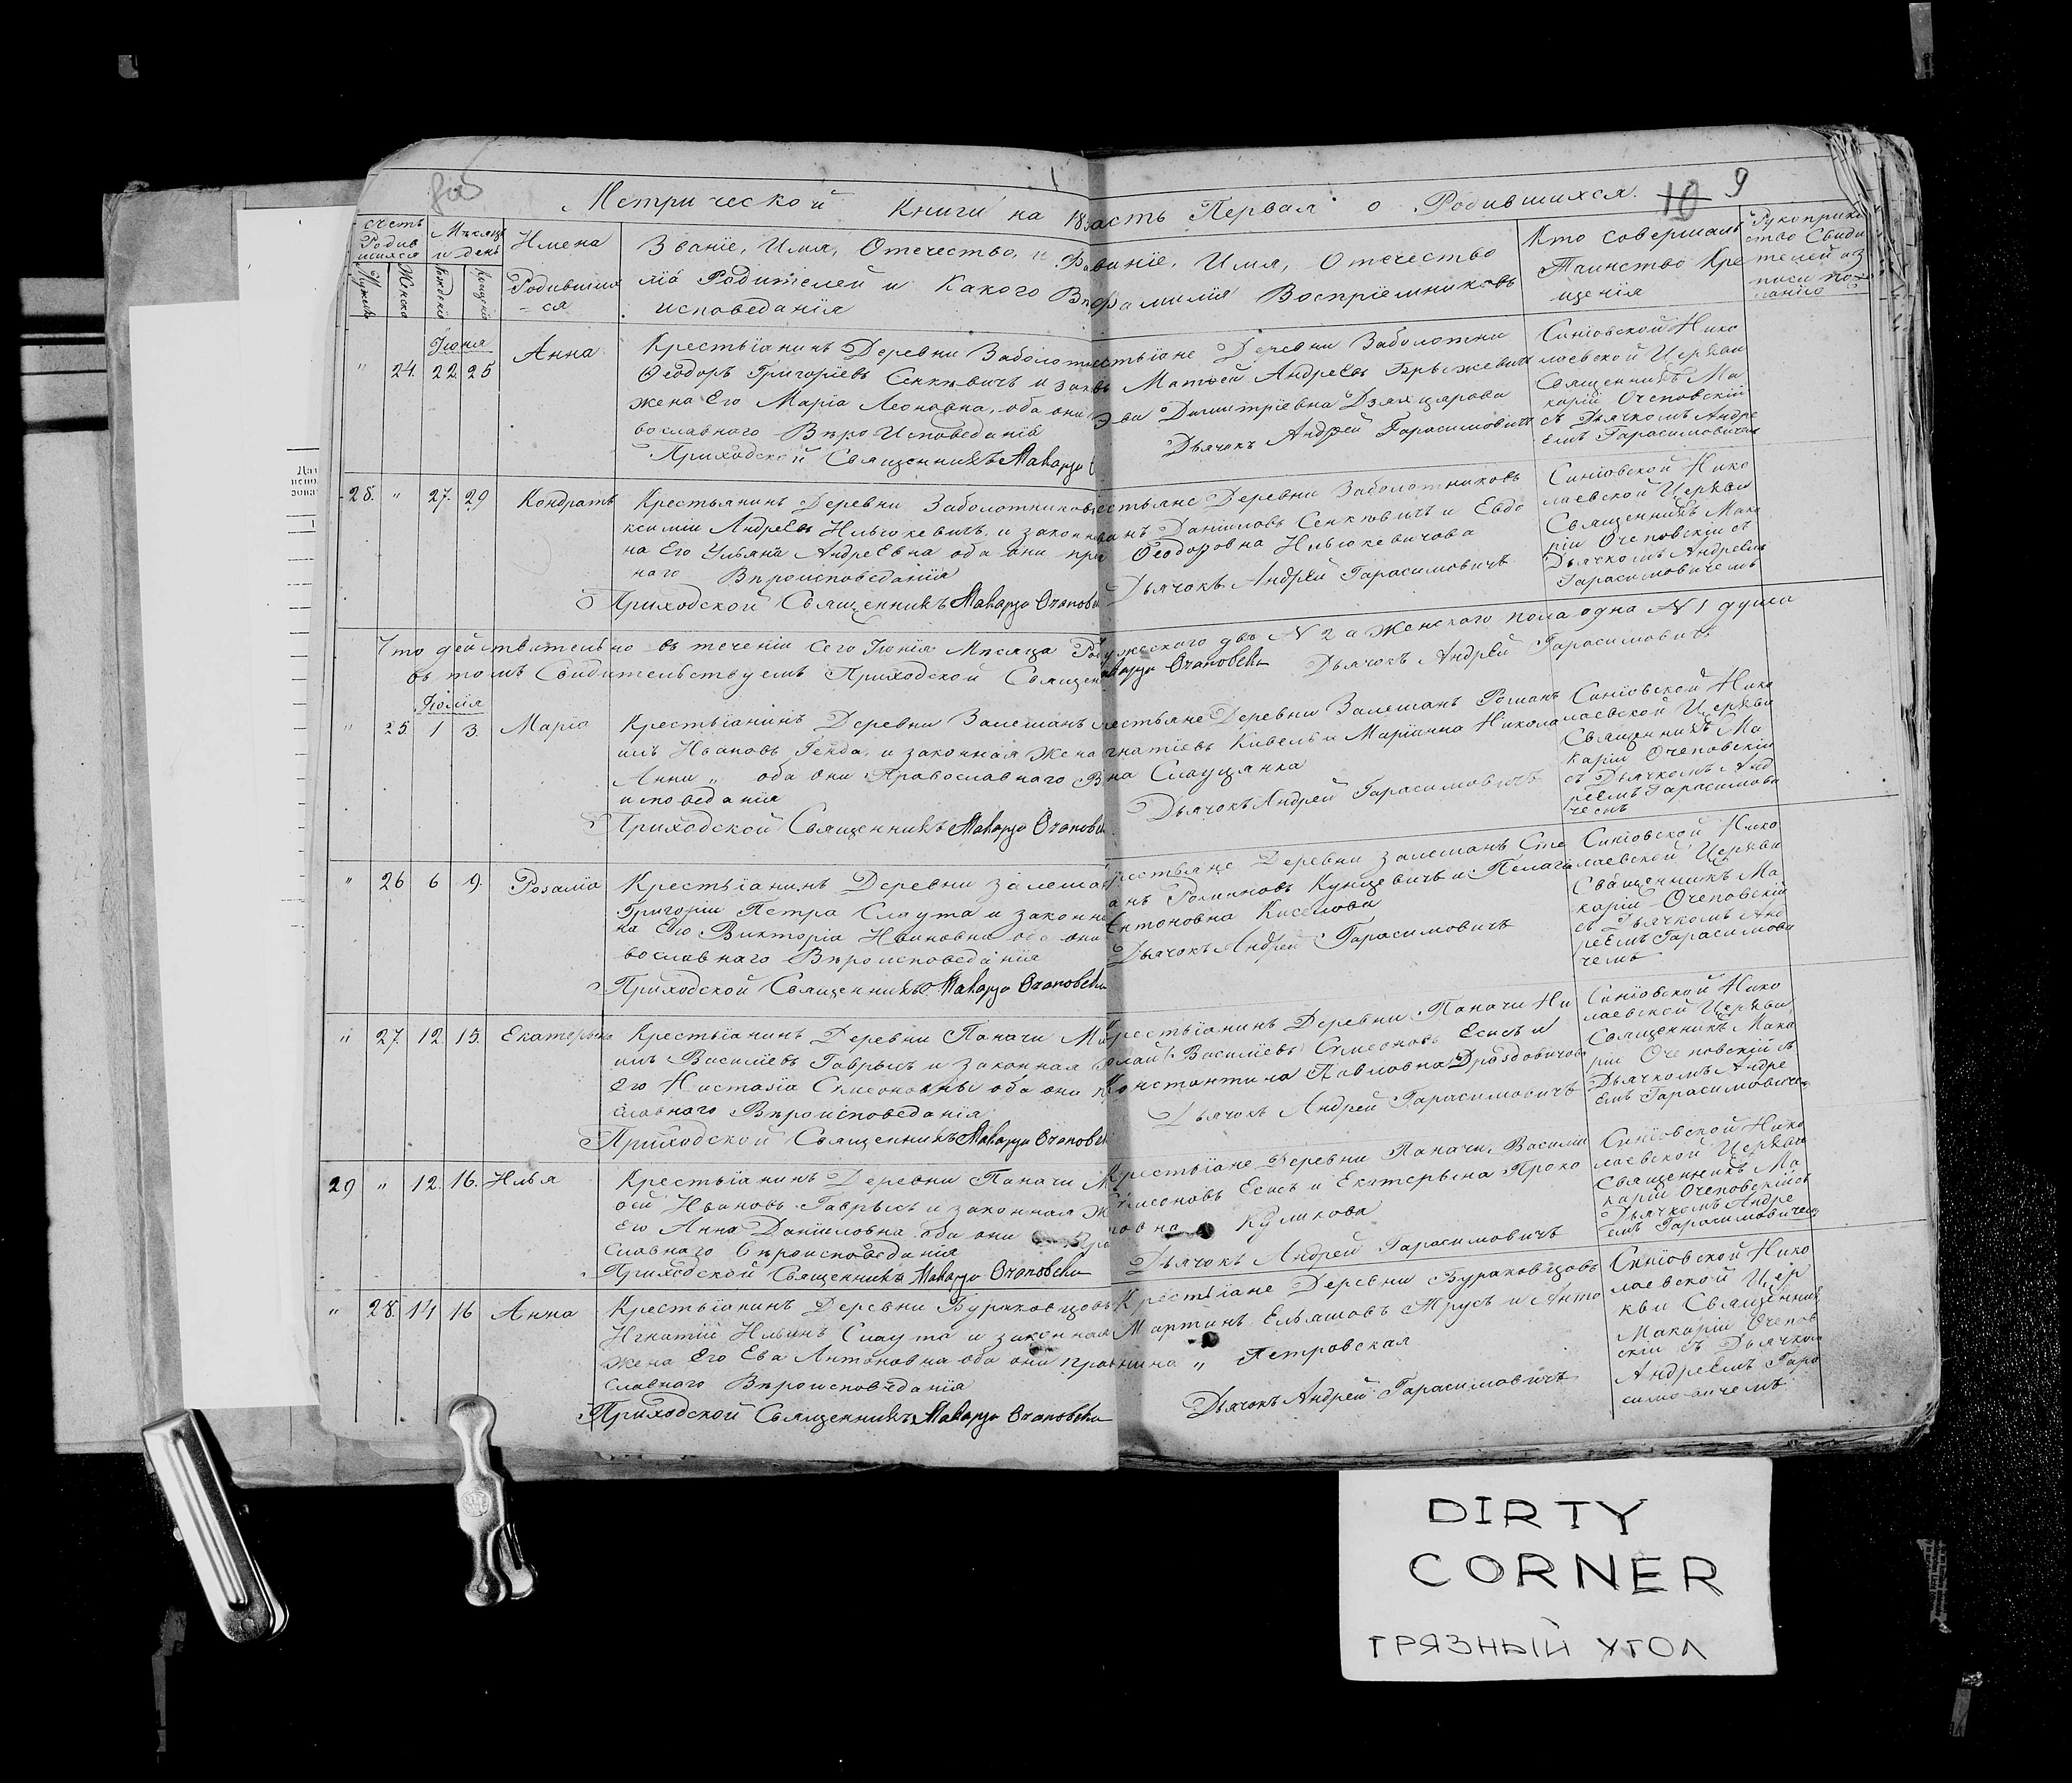 Метрической Книги на 18
часть Первая о Родившихся. 10 9
Счетъ Родившихся
Мужеска
Женска
Мѣсяцъ и день
Рожденія
Крещенія
Имена
Родивших
ся
Званіе, Имя, Отечество, и Фа
милія Родителей и Какого Вѣро
исповеданія
Званіе, Имя, Отечество
Фамилия Воспріемниковъ
Кто совершалъ
Таинство Кре
щенія
Рукоприкл
ство Свиди
телей о за
писи по же
ланію
Іюня
" 24. 22 25 Анна
Крестьіанинъ Деревни Заболотни
Ѳеодоръ Григоріевъ Сенкевичъ и зак
жена Его Маріа Леоновна, оба они
вославного Вѣро Исповеданія
Приходской Священникъ Макарій
естьіане Деревни Заболотни
Матѳей Андреевъ Брыжевич
Эва Димитріевна Дзяхцярова
Дьячокъ Андрей Гарасимовичъ
Синіовской Нико
лаевской Церкви
Священникъ Ма
карій Очеповскій
съ Дьячкомъ Андре
емъ Гарасимовичем
28. " 27. 29 Кондратъ
Крестьянинъ Деревни Заболотниковъ
ксимій Андреевъ Ильюкевичъ, и законна
на Его Ульяна Андреевна оба они пра
наго Вѣроисповеданія
Приходской Священникъ Макарій Очаповски
естьяне Деревни Заболотниковъ
анъ Даніиловъ Сенкевичъ и Евдо
Ѳеодоровна Ильюкевичова
Дьячокъ Андрей Гарасимовичъ
Синіовской Нико
лаевской Церкви
Священникъ Мака
рій Очеповскій съ
Дьячкомъ Андреемъ
Гарасимовичемъ
Что действительно въ теченіи сего Іюнія Мѣсяца Род
ужескаго две N 2 а Женского пола одна N 1 душа
въ томъ Свидительствуемъ Приходской Священ
Макарій Очаповски Дьячокъ Андрей Гарасимовичъ
Іюлія
" 25. 1 3. Маріа
Крестьіанинъ Деревни Залешанъ
имъ Ивановъ Генда, и законная жена
Анна " оба они Православнаго В
исповеданія
Приходской Священникъ Макарій Очаповски
рестьяне Деревни Залешанъ Романъ
гнатіевъ Кивель и Маріанна Никола
на Слауцянка
Дьячокъ Андрей Гарасимовичъ
Синіовской Нико
лаевской Церкви
Священникъ Ма
карій Очеповскій
съ Дьячкомъ Анд
реемъ Гарасимови
чемъ
" 26 6 9. Розаліа
Крестьіанинъ Деревни Залеша
Григорій Петра Слаута и законна
на Его Викторіа Ивановна оба они
вославнаго Вѣроисповеданія
Приходской Священникъ Макарій Очаповски
рестьяне Деревни Залешанъ Сте
анъ Романовъ Кунцевичъ и Пелаги
Антоновна Киселюва
Дьячокъ Андрей Гарасимовичъ
Синіовской Нико
лаевской Церкви
Священникъ Ма
карій Очеповскій
съ Дьячкомъ Анд
реемъ Гарасимови
чемъ
" 27. 12. 15. Екатерына
Крестьіанинъ Деревни Паначи М
имъ Василіевъ Гаврысъ и законная
Его Настазіа Симеоновны оба они п
славного Вѣроисповеданія
Приходской Священникъ Макарій Очаповски
Крестьіанинъ Деревни Паначи Ни
олай (Василіевъ) Симеоновъ Есисъ и
Константина Павловна Дроздовичов
Дьячокъ Андрей Гарасимовичъ
Синіовской Нико
лаевской Церкви
Священникъ Мака
рій Очеповскій съ
Дьячкомъ Андре
емъ Гарасимовичем
29 " 12. 16. Илья
Крестьіанинъ Деревни Паначи М
сѣй Ивановъ Гаврысъ и законная ж
Его Анна Даніиловна оба они Пра
славнаго Вѣроисповеданія
Приходской Священникъ Макарій Очаповски
Крестьіане Деревни Паначи, Василій
Симеоновъ Есисъ и Екатерына Проко
повна Куликова
Дьячокъ Андрей Гарасимовичъ
Синіовской Нико
лаевской Церкви
Священникъ Ма
карій Очеповскій съ
Дьячкомъ Андре
емъ Гарасимовичем
" 28. 14 16 Анна
Крестьіанинъ Деревни Бураковцовъ
Игнатій Ильинъ Слаута и законная
жена Его Ева Антоновна оба они прав
славного Вѣроисповѣданія
Приходской Священникъ Макарій Очаповски
Крестьіане Деревни Бураковцовъ
Мартинъ Ельяшовъ Трусъ и Анто
нина " Петровская
Дьячокъ Андрей Гарасимовичъ
Синіовской Нико
лаевской Цер
кви Священник
Макарій Очепов
скій съ Дьячком
Андреемъ Гара
симовичемъ
DIRTY
CORNER
ГРЯЗНЫЙ УГОЛ